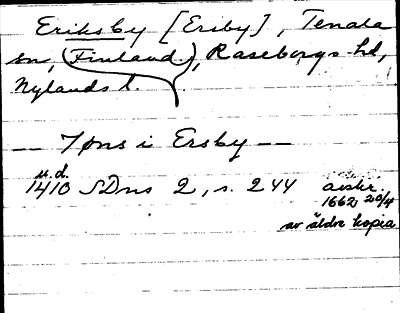 Eriksby [Eriby], Tenala
sn, (Finland), Raseborgs hd,
Nylands l.
— Jöns i Ersby —
u.d.
1410 SDns 2, s. 244 avskr.
1662 20/4
av äldre kopia